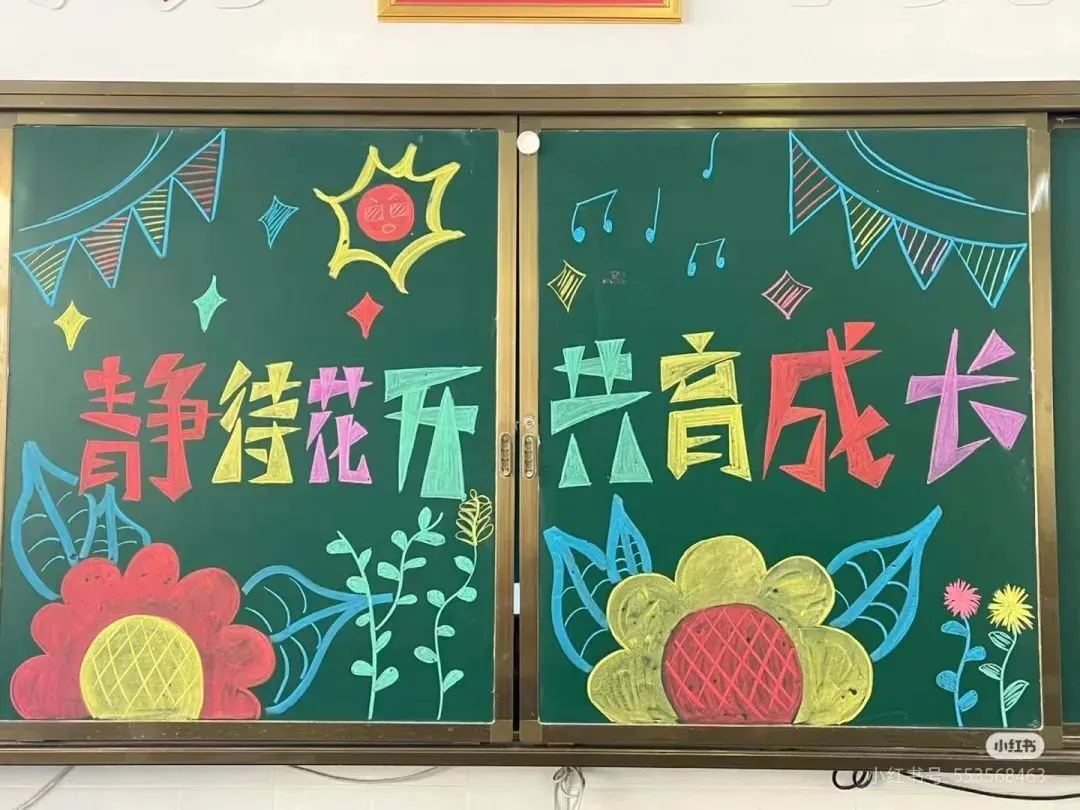 静待花开 共育成长
小红书
小红书号 553568463